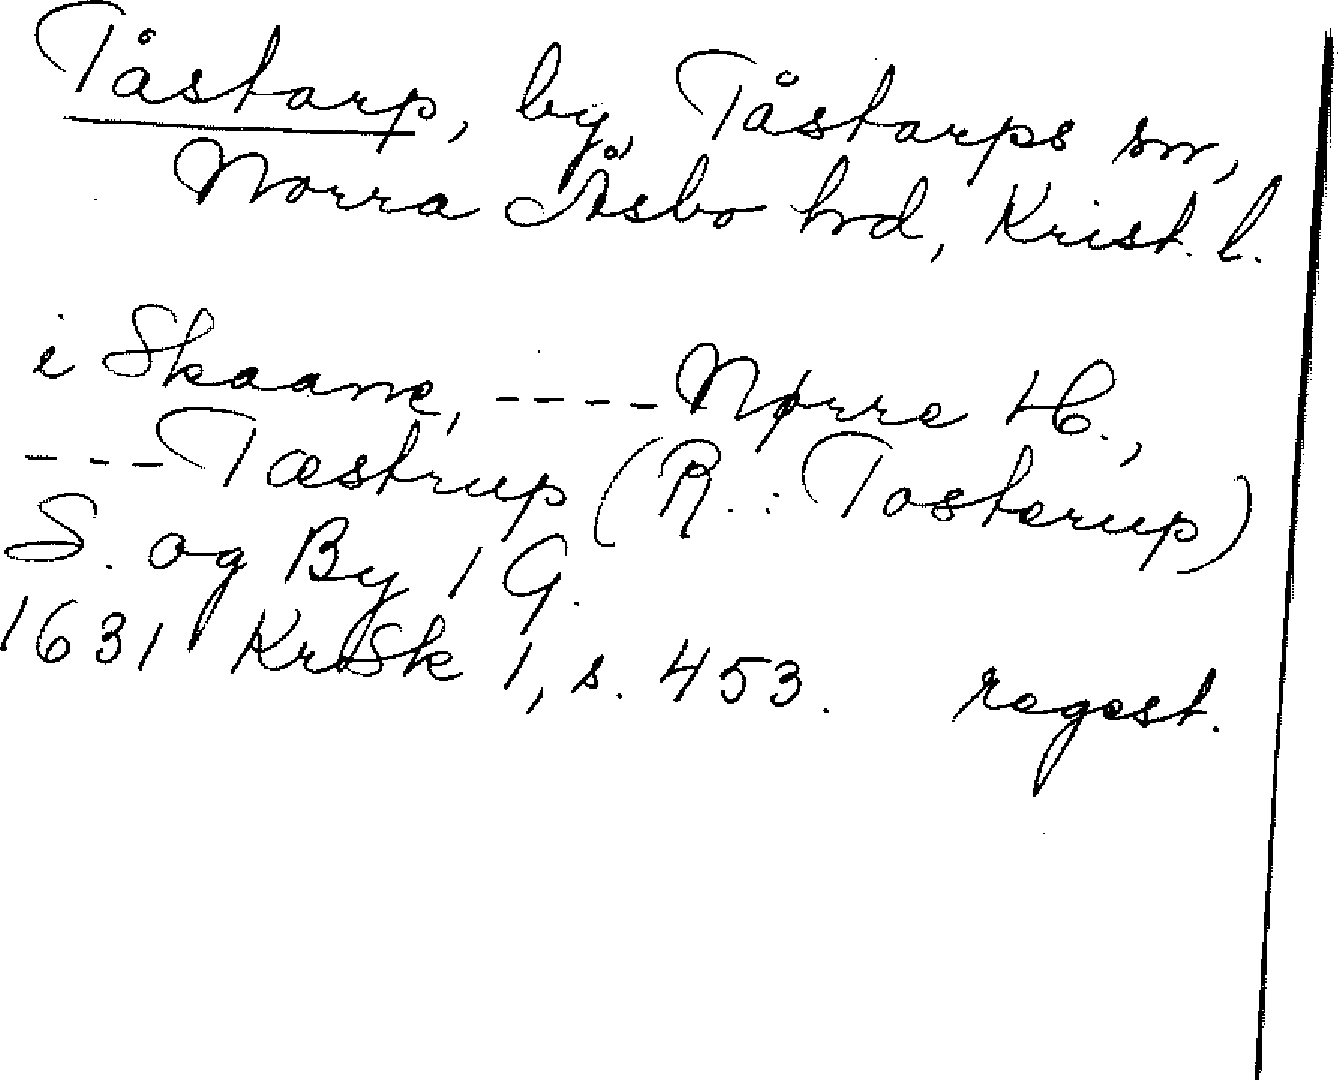 Tåstarp, by, Tåstarps sn,
Norra Åsbo hd, Krist. l.
i Skaane, ---- Nørre H.,
--- Tæstrup (R.: Tosterup)
S. og By 1 G.
1631 KrSk 1, s. 453. regest.